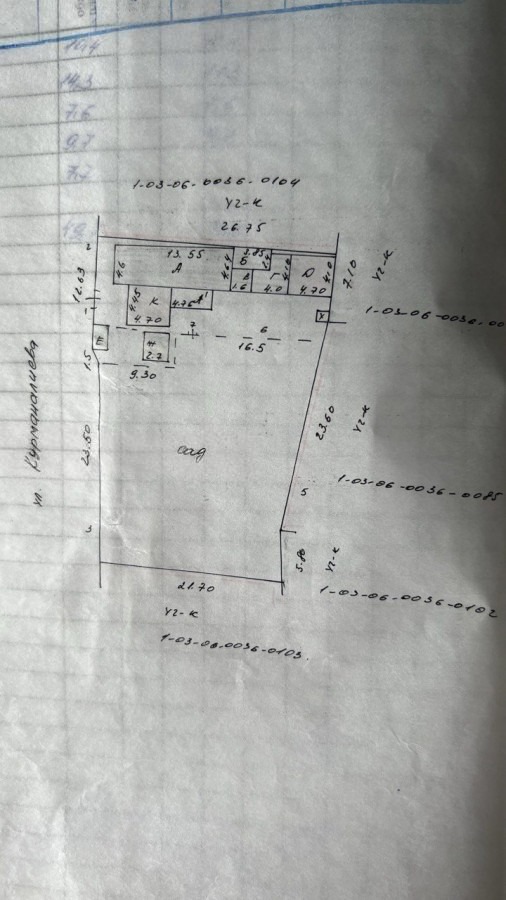 10,4
14,3
7,6
9,7
7,7
1-03-06-0036-0104
уг-к
26.75
2
13.55
А
4.6
4.64
3.85
Б
В
1.6
Г
4.0
4.10
Д
4.70
4.10
7.10
уг-к
12.63
4.45
К
4.70
4.75
А'
У
1-03-06-0036-00
1
Ш
7
6
16.5
Н
2.7
1.5
9.30
ул. Курманалиева
23.50
сад
23.60
уг-к
5
1-03-06-0036-0085
3
5.80
уг-к
21.70
1-03-06-0036-0102
уг-к
1-03-06.0036-0103.